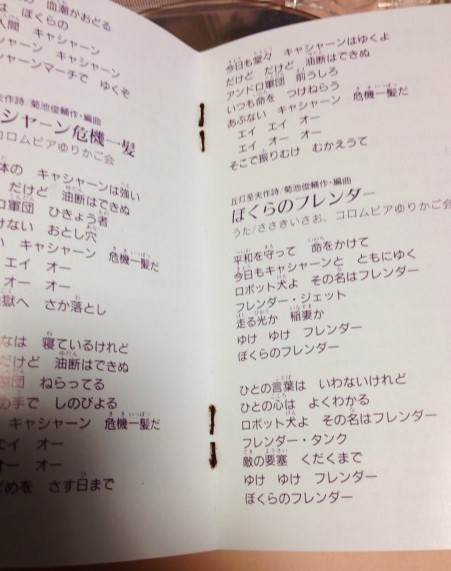 の 血潮がおどる
は ぼくらの
人間 キャシャーン
シャーン キャシャーン
シャーンマーチで ゆくぞ
夫作詩/菊池俊輔作・編曲
シャーン危機一髪
コロムビアゆりかご会
体の キャシャーンは強い
だけど 油断はできぬ
軍団 ひきょう者
けない おとし穴
い キャシャーン 危機一髪だ
エイ オー
オー オー
獄へ さか落とし
なは 寝ているけれど
だけど 油断はできぬ
軍団 ねらってる
の手で しのびよる
キャシャーン 危機一髪だ
エイ オー
オー オー
どめを さす日まで
今日も堂々 キャシャーンはゆくよ
だけど だけど 油断はできぬ
アンドロ軍団 前うしろ
いつも命を つけねらう
あぶない キャシャーン 危機一髪だ
エイ エイ オー
エイ オー オー
そこで振りむけ むかえうて
丘灯至夫作詩/菊池俊輔作・編曲
ぼくらのフレンダー
うた/ささきいさお、コロムビアゆりかご会
平和を守って 命をかけて
今日もキャシャーンと ともにゆく
ロボット犬よ その名はフレンダー
フレンダー・ジェット
走る光か 稲妻か
ゆけ ゆけ フレンダー
ぼくらのフレンダー
ひとの言葉は いわないけれど
ひとの心は よくわかる
ロボット犬よ その名はフレンダー
フレンダー・タンク
敵の要塞 くだくまで
ゆけ ゆけ フレンダー
ぼくらのフレンダー